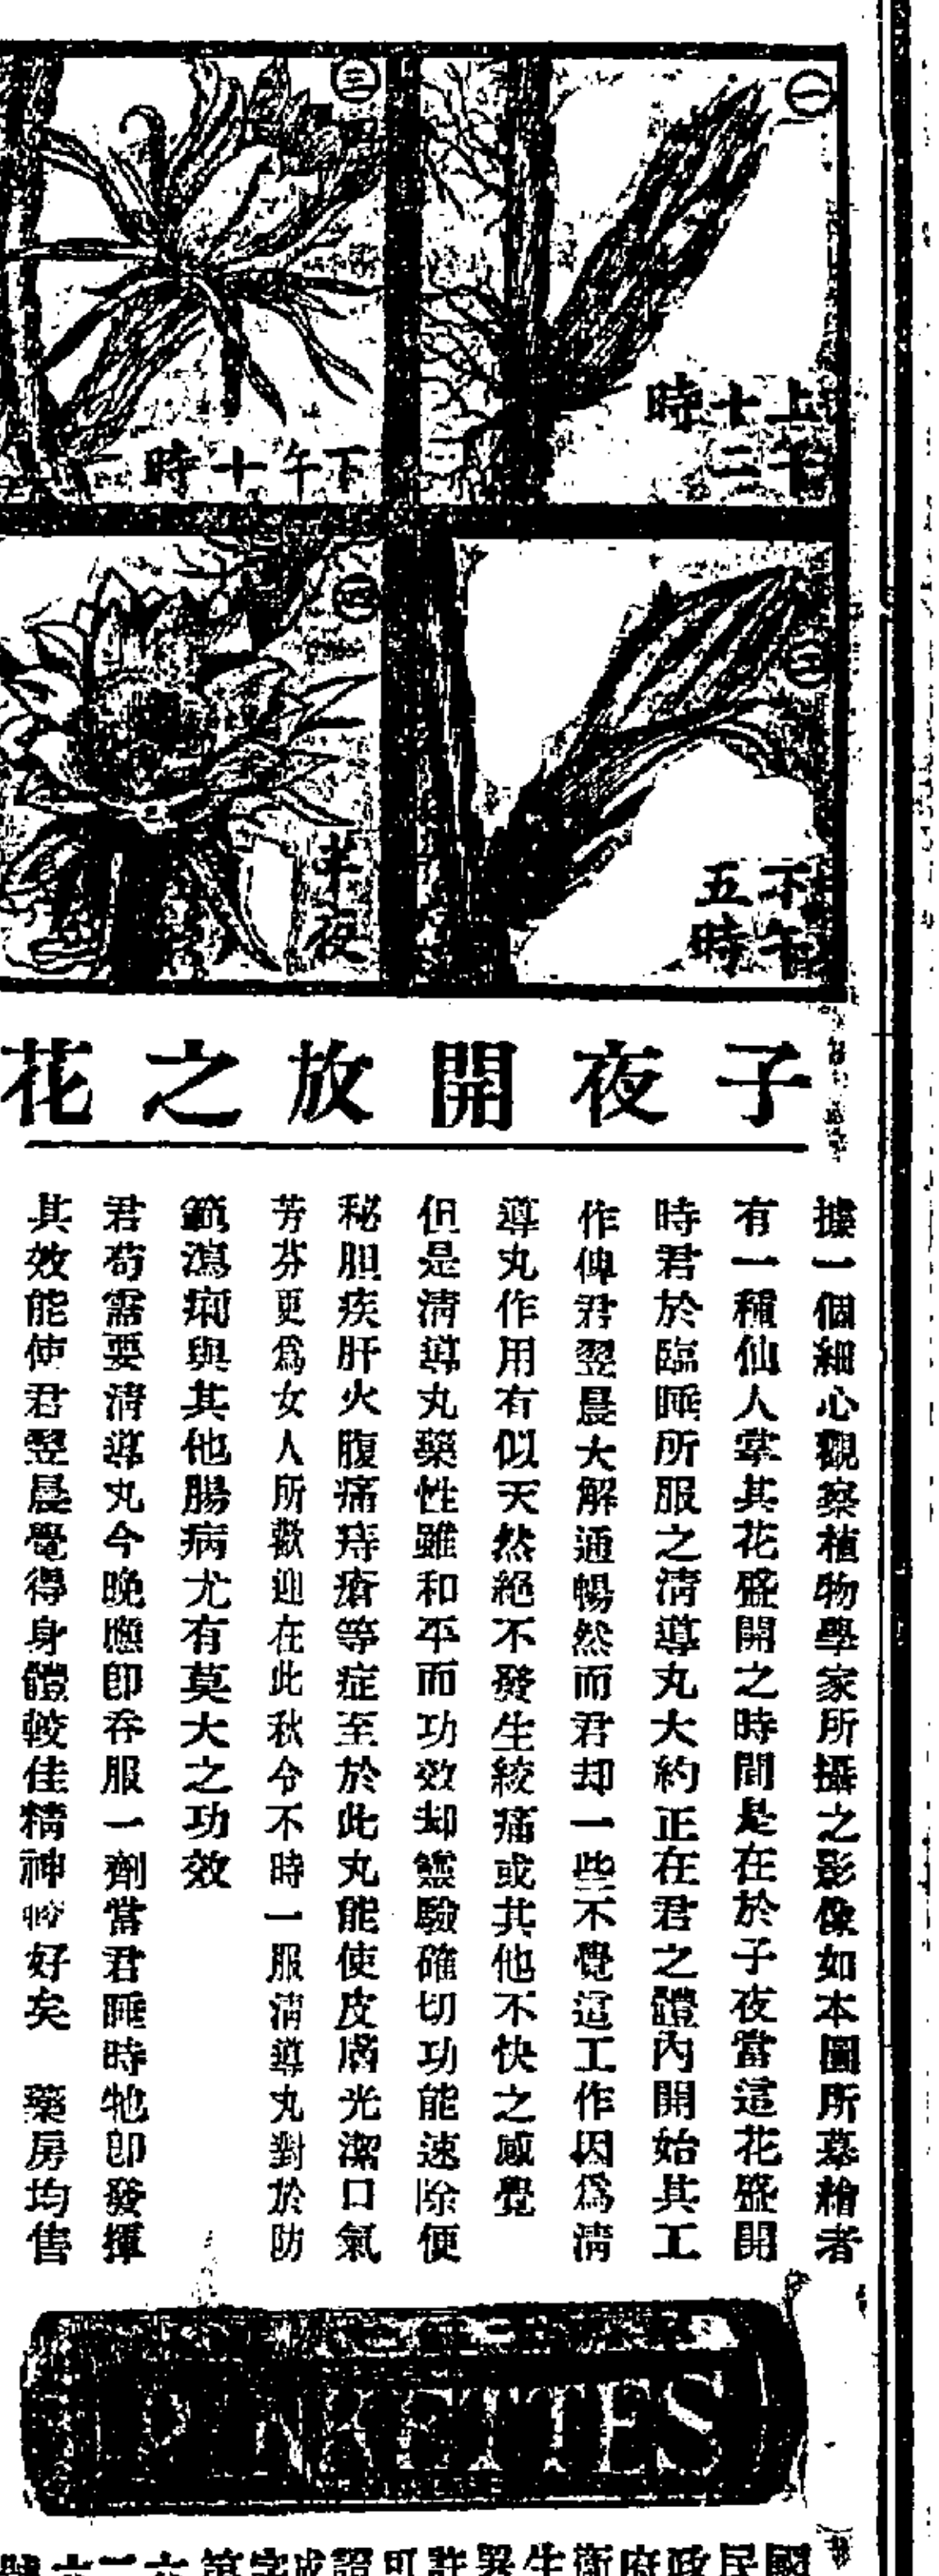 ㊀
上午
十二
時
㊁
下午
五時
㊂
下午十時
㊃
半夜
子夜開放之花
據一個細心觀察植物學家所攝之影像如本圖所摹繪者
有一種仙人掌其花盛開之時間是在於子夜當這花盛開
時君於臨睡所服之清導丸大約正在君之體內開始其工
作俾君翌晨大解通暢然而君却一些不覺這工作因爲清
導丸作用有似天然絕不發生絞痛或其他不快之感覺
但是清導丸藥性雖和平而功效却靈驗確切功能速除便
秘胆疾肝火腹痛痔瘡等症至於此丸能使皮膚光潔口氣
芳芬更爲女人所歡迎在此秋令不時一服清導丸對於防
範瀉痢與其他腸病尤有莫大之功效
君苟需要清導丸今晚應即吞服一劑當君睡時牠即發揮
其效能使君翌晨覺得身體較佳精神好矣 藥房均售
PINKETTES
國民政府衛生署許可證成字第六二六號